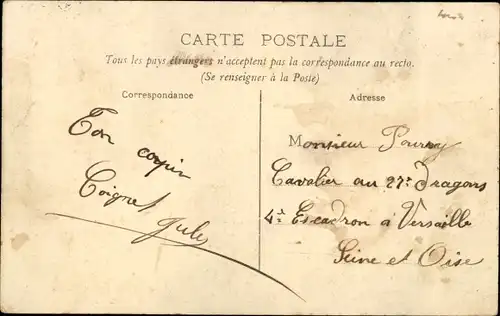 CARTE POSTALE
Tous les pays étrangers n'acceptent pas la correspondance au recto.
(Se renseigner à la Poste)
Correspondance
Ton copin
Coignet Jules
Adresse
Monsieur Pourroy
Cavalier au 27e Dragons
4e Escadron a Versaille
Seine et Oise